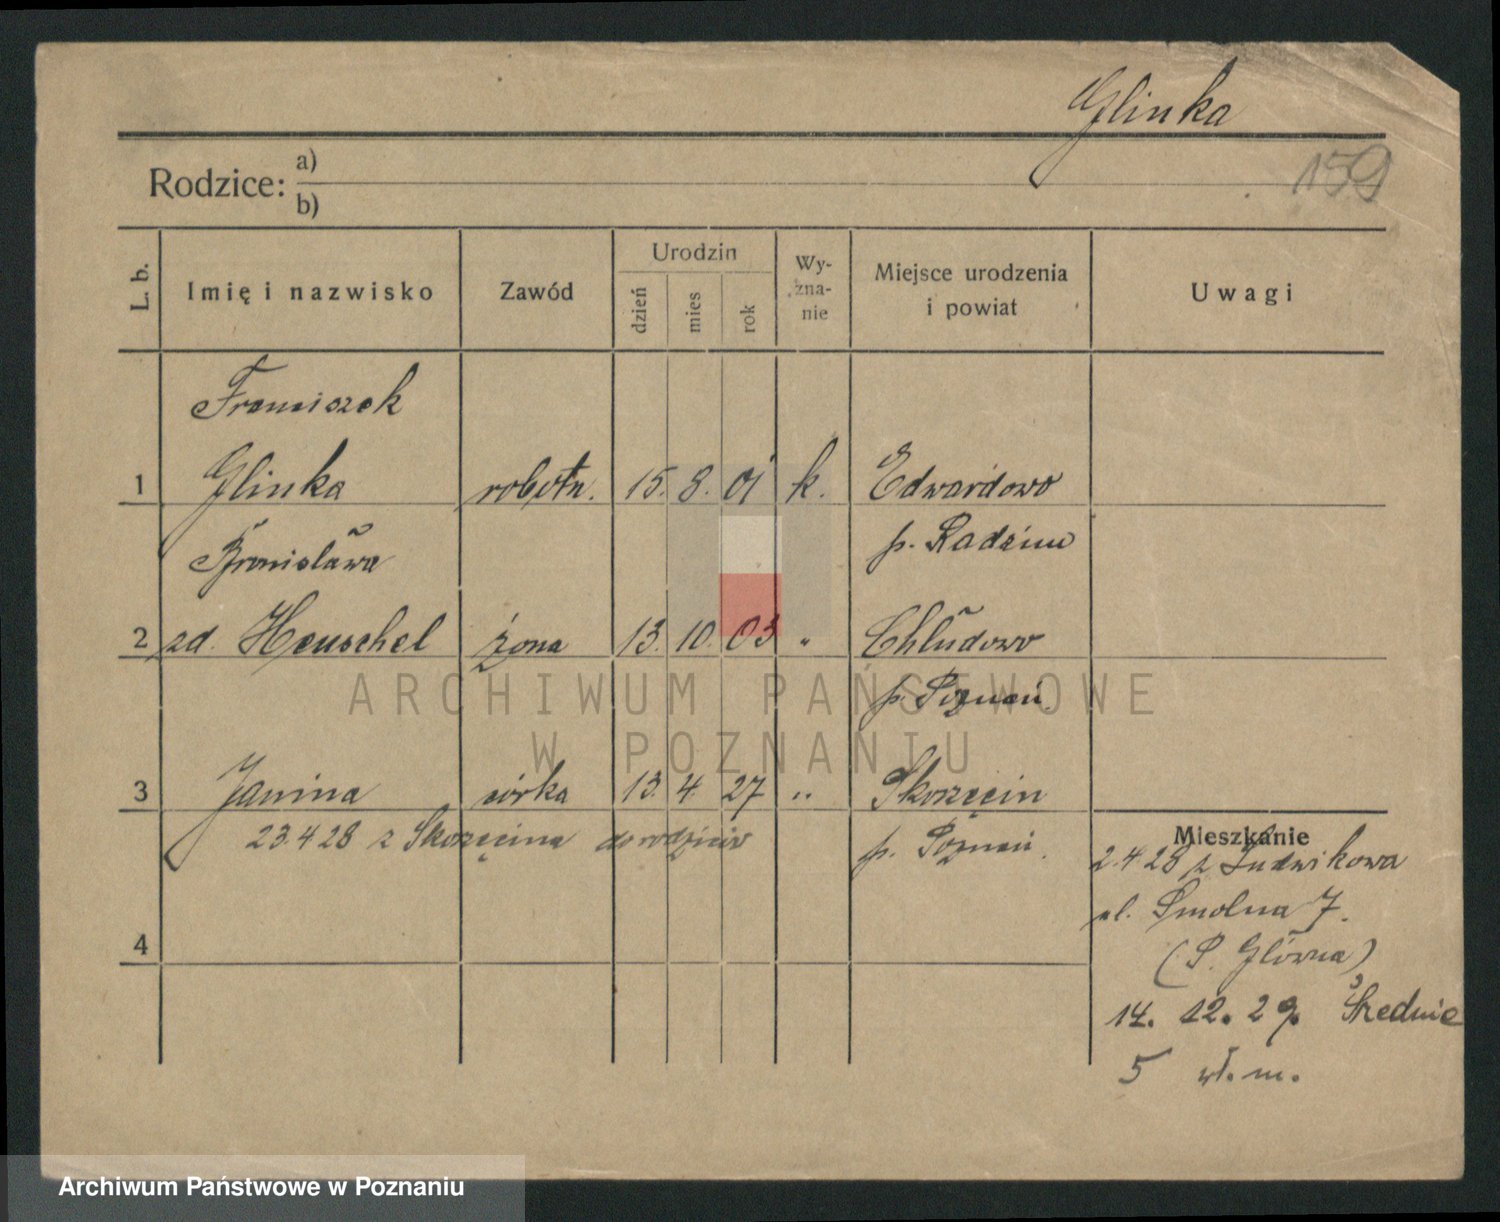 Glinka
159
Rodzice: a)
b)
L. b. Imię i nazwisko Zawód Urodzin dzień mies rok Wy-zna-nie Miejsce urodzenia i powiat Uwagi
Franciszek
1 Glinka robotn. 15. 8. 01 k. Edwardowo
Bronisława p. Radzim
2 zd. Henschel żona 13. 10. 03 " Chludowo
p. Poznań
3 Janina córka 13. 4. 27 " Skorzęcin
23.4 28 z Skorzęcina do rodziców p. Poznań.
Mieszkanie
2.4 28 z Ludwikowa
ul. Smolna 7.
4 (P. Główna)
14. 12. 29. Średnie
5 wł. m.
ARCHIWUM PAŃSTWOWE
W POZNANIU
Archiwum Państwowe w Poznaniu